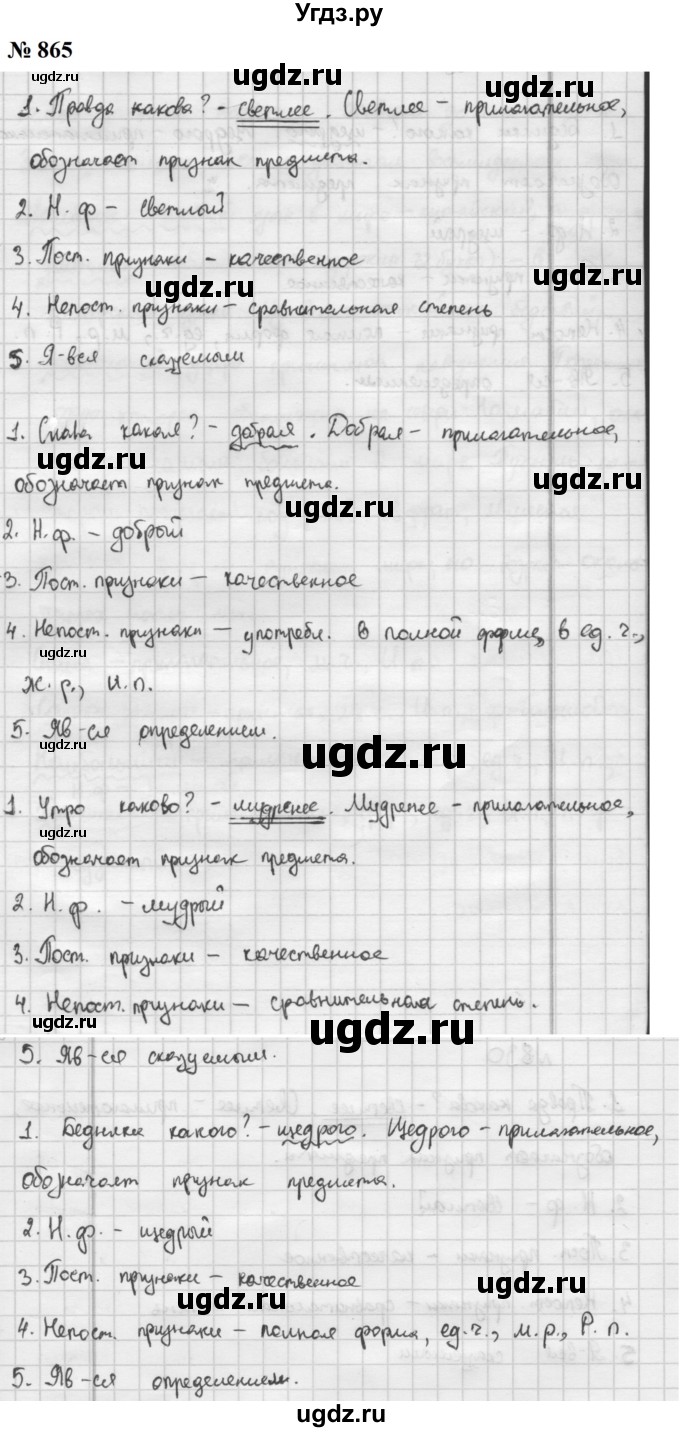 Угдз.ру
№ 865
1. Правда какова? - светлее. Светлее - прилагательное,
обозначает признак предмета.
2. Н. ф - светлый
3. Пост. признаки - качественное
4. Непост. признаки - сравнительная степень
5. Я-вся сказуемым
1. Слава какая? - добрая. Добрая - прилагательное,
обозначает признак предмета.
2. Н.ф. - добрый
3. Пост. признаки - качественное
4. Непост. признаки - употребл. в полной форме, в ед. ч.,
ж. р., И.п.
5. Яв-ся определением.
1. Утро каково? - мудренее. Мудренее - прилагательное,
обозначает признак предмета.
2. Н.ф. - мудрый
3. Пост. признаки - качественное
4. Непост. признаки - сравнительная степень.
5. Яв-ся сказуемым.
1. Бедняка какого? - щедрого. Щедрого - прилагательное,
обозначает признак предмета.
2. Н.ф. - щедрый
3. Пост. признаки - качественное
4. Непост. признаки - полная форма, ед.ч., м.р., Р. п.
5. Яв-ся определением.
ugdz.ru